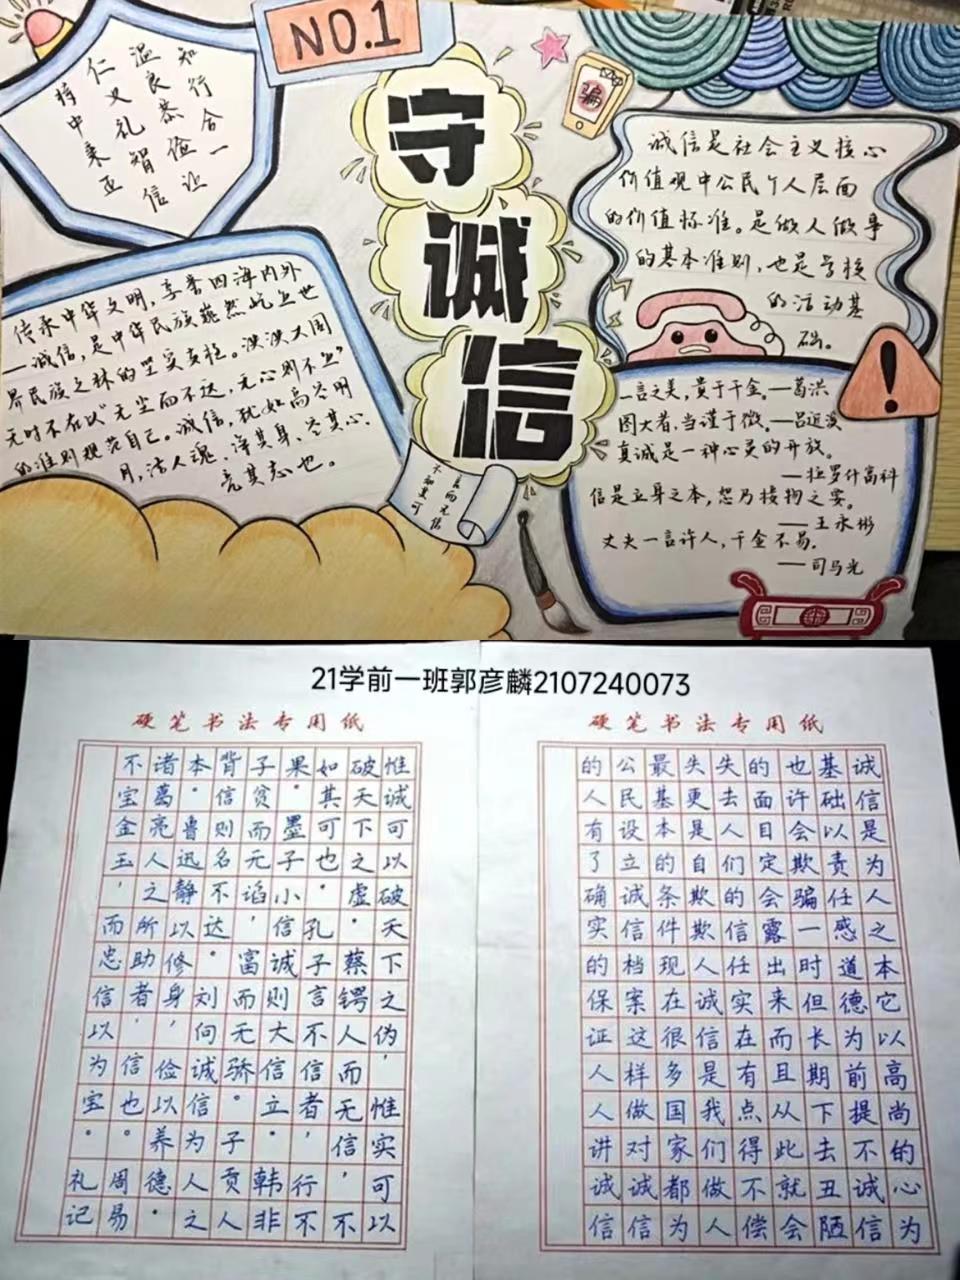 NO.1
知行合一
温良恭俭让
仁义礼智信
持中秉正
守诚信
骗
诚信是社会主义核心
价值观中公民个人层面
的价值标准。是做人做事
的基本准则，也是学校
的活动基
础。
传承中华文明，享誉四海内外
—诚信，是中华民族巍然屹立世
界民族之林的坚实支柱。泱泱大国
无时不在以“无尘而不达，无心则不立”
的准则规范自己。诚信，犹如高空明
月，洁人魂、净其身、尽其心、
亮其志也。
而无信
不知其可
一言之美，贵于千金。—葛洪
图大者，当谨于微。—吕近溪
真诚是一种心灵的开放。
—拉罗什富科
信是立身之本，恕乃接物之要。
—王永彬
丈夫一言许人，千金不易。
—司马光
21学前一班郭彦麟2107240073
硬笔书法专用纸
诚信是为人之本它以高尚的心为
基础以责任感道德为前提不诚信
也许会欺骗一时但长期下去丑陋
的面目定会露出来而且从此就会
失去人们的信任实在有点得不偿
失更是自欺欺人诚信是我们做人
最基本的条件现在很多国家都为
公民设立诚信档案这样做对诚信
的人有了确实的保证人人讲诚信
硬笔书法专用纸
惟诚可以破天下之伪，惟实可以
破天下之虚。蔡锷人而无信，不
如其可也。孔子言不信者，行不
果。墨子小信诚则大信立。韩非
子贫而无谄，富而无骄。子贡人
背信则名不达。刘向诚信为人之
本。鲁迅静以修身，俭以养德。
诸葛亮人之所助者，信也。周易
不宝金玉，而忠信以为宝。礼记